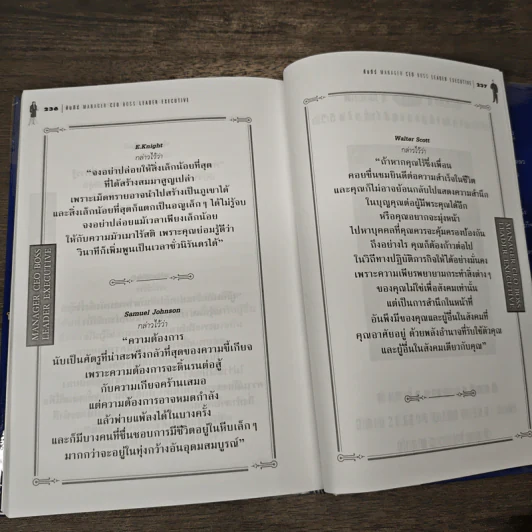 236 MANAGER CEO BOSS LEADER EXECUTIVE
E.Knight
กล่าวไว้ว่า
"จงอย่าปล่อยให้สิ่งเล็กน้อยที่สุด
ที่ได้สร้างสมมาสูญเปล่า
เพราะเม็ดทรายอาจนำไปสร้างเป็นภูเขาได้
และสิ่งเล็กน้อยที่สุดก็แตกเป็นอณูเล็ก ๆ ได้ไม่รู้จบ
จงอย่าปล่อยแม้เวลาเพียงเล็กน้อย
ให้กับความมัวเมาไร้สติ เพราะคุณย่อมรู้ดีว่า
วินาทีก็เพิ่มพูนเป็นเวลาชั่วนิรันดรได้"
MANAGER CEO BOSS
LEADER EXECUTIVE
Samuel Johnson
กล่าวไว้ว่า
"ความต้องการ
นับเป็นศัตรูที่น่าสะพรึงกลัวที่สุดของความขี้เกียจ
เพราะความต้องการจะดิ้นรนต่อสู้
กับความเกียจคร้านเสมอ
แต่ความต้องการอาจหมดกำลัง
แล้วพ่ายแพ้ลงได้ในบางครั้ง
และก็มีบางคนที่ชื่นชอบการมีชีวิตอยู่ในหีบเล็ก ๆ
มากกว่าจะอยู่ในทุ่งกว้างอันอุดมสมบูรณ์"
MANAGER CEO BOSS LEADER EXECUTIVE 237
Walter Scott
กล่าวไว้ว่า
"ถ้าหากคุณไร้ซึ่งเพื่อน
คอยชื่นชมยินดีต่อความสำเร็จในชีวิต
และคุณก็ไม่อาจย้อนกลับไปแสดงความสำนึก
ในบุญคุณต่อผู้มีพระคุณได้อีก
หรือคุณอยากจะมุ่งหน้า
ไปหาบุคคลที่คุณควรจะคุ้มครองป้องกัน
ถึงอย่างไร คุณก็ต้องก้าวต่อไป
ในวิถีทางปฏิบัติภารกิจให้ได้อย่างมั่นคง
เพราะความเพียรพยายามกระทำสิ่งต่างๆ
ของคุณไม่ใช่เพื่อสังคมเท่านั้น
แต่เป็นการสำนึกในหน้าที่
อันพึงมีของคุณและผู้อื่นในสังคมที่
คุณอาศัยอยู่ ด้วยพลังอำนาจที่รับใช้ตัวคุณ
และผู้อื่นในสังคมเดียวกับคุณ"